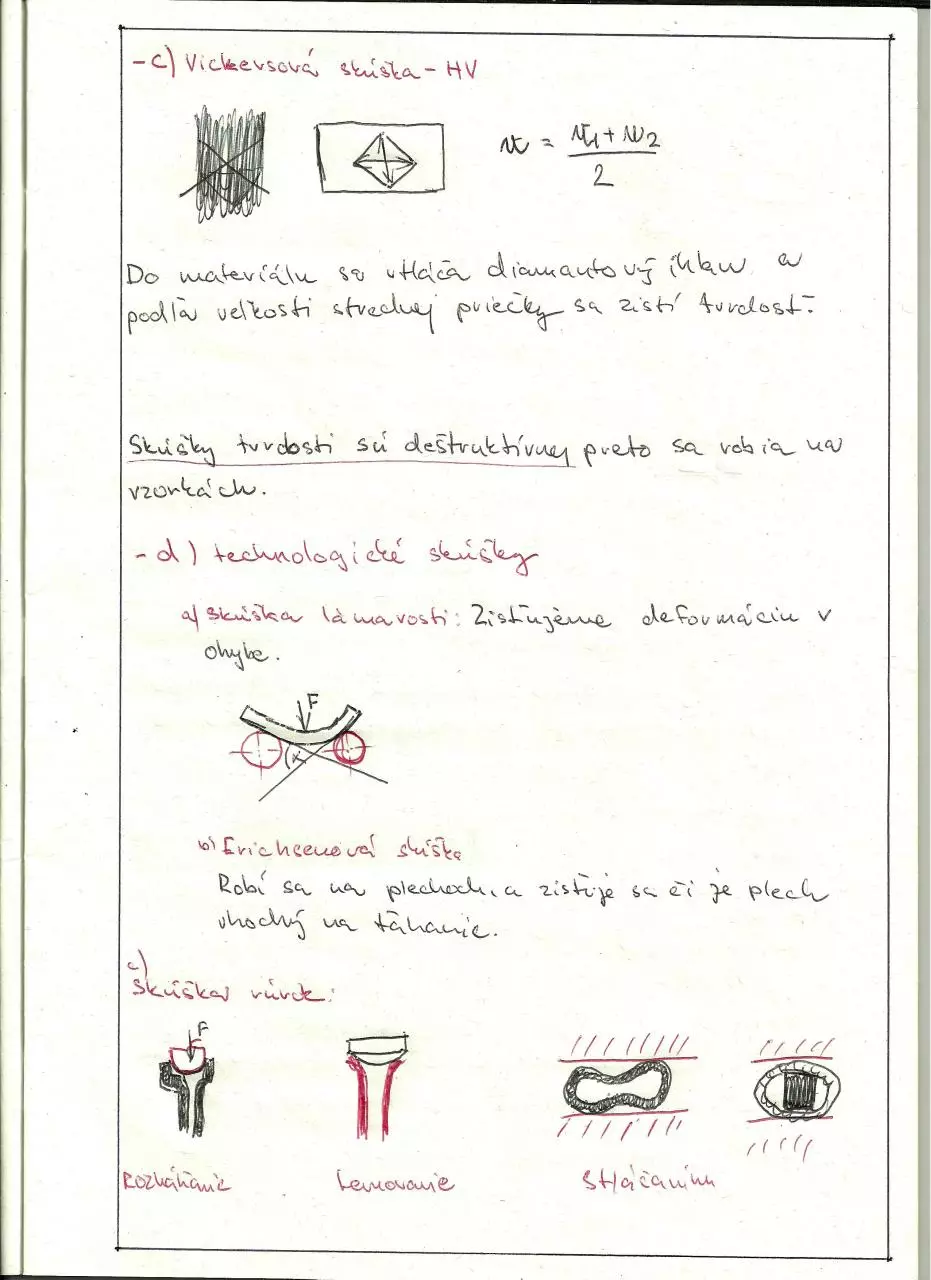 -c) Vickersová skúška - HV
u = u1 + u2
2
Do materiálu sa vtláča diamantový ihlan a
podľa veľkosti strednej priečky sa zistí tvrdosť.
Skúšky tvrdosti sú deštruktívnej preto sa robia na
vzorkách.
-d) technologické skúšky
a) skúška lámavosti: Zisťujeme deformáciu v
ohybe.
F
α
b) Erichsenová skúška
Robí sa na plechoch, a zisťuje sa či je plech
vhodný na ťahanie.
c)
Skúška rúrok:
F
Rozháňanie
Lemovanie
Stláčaním